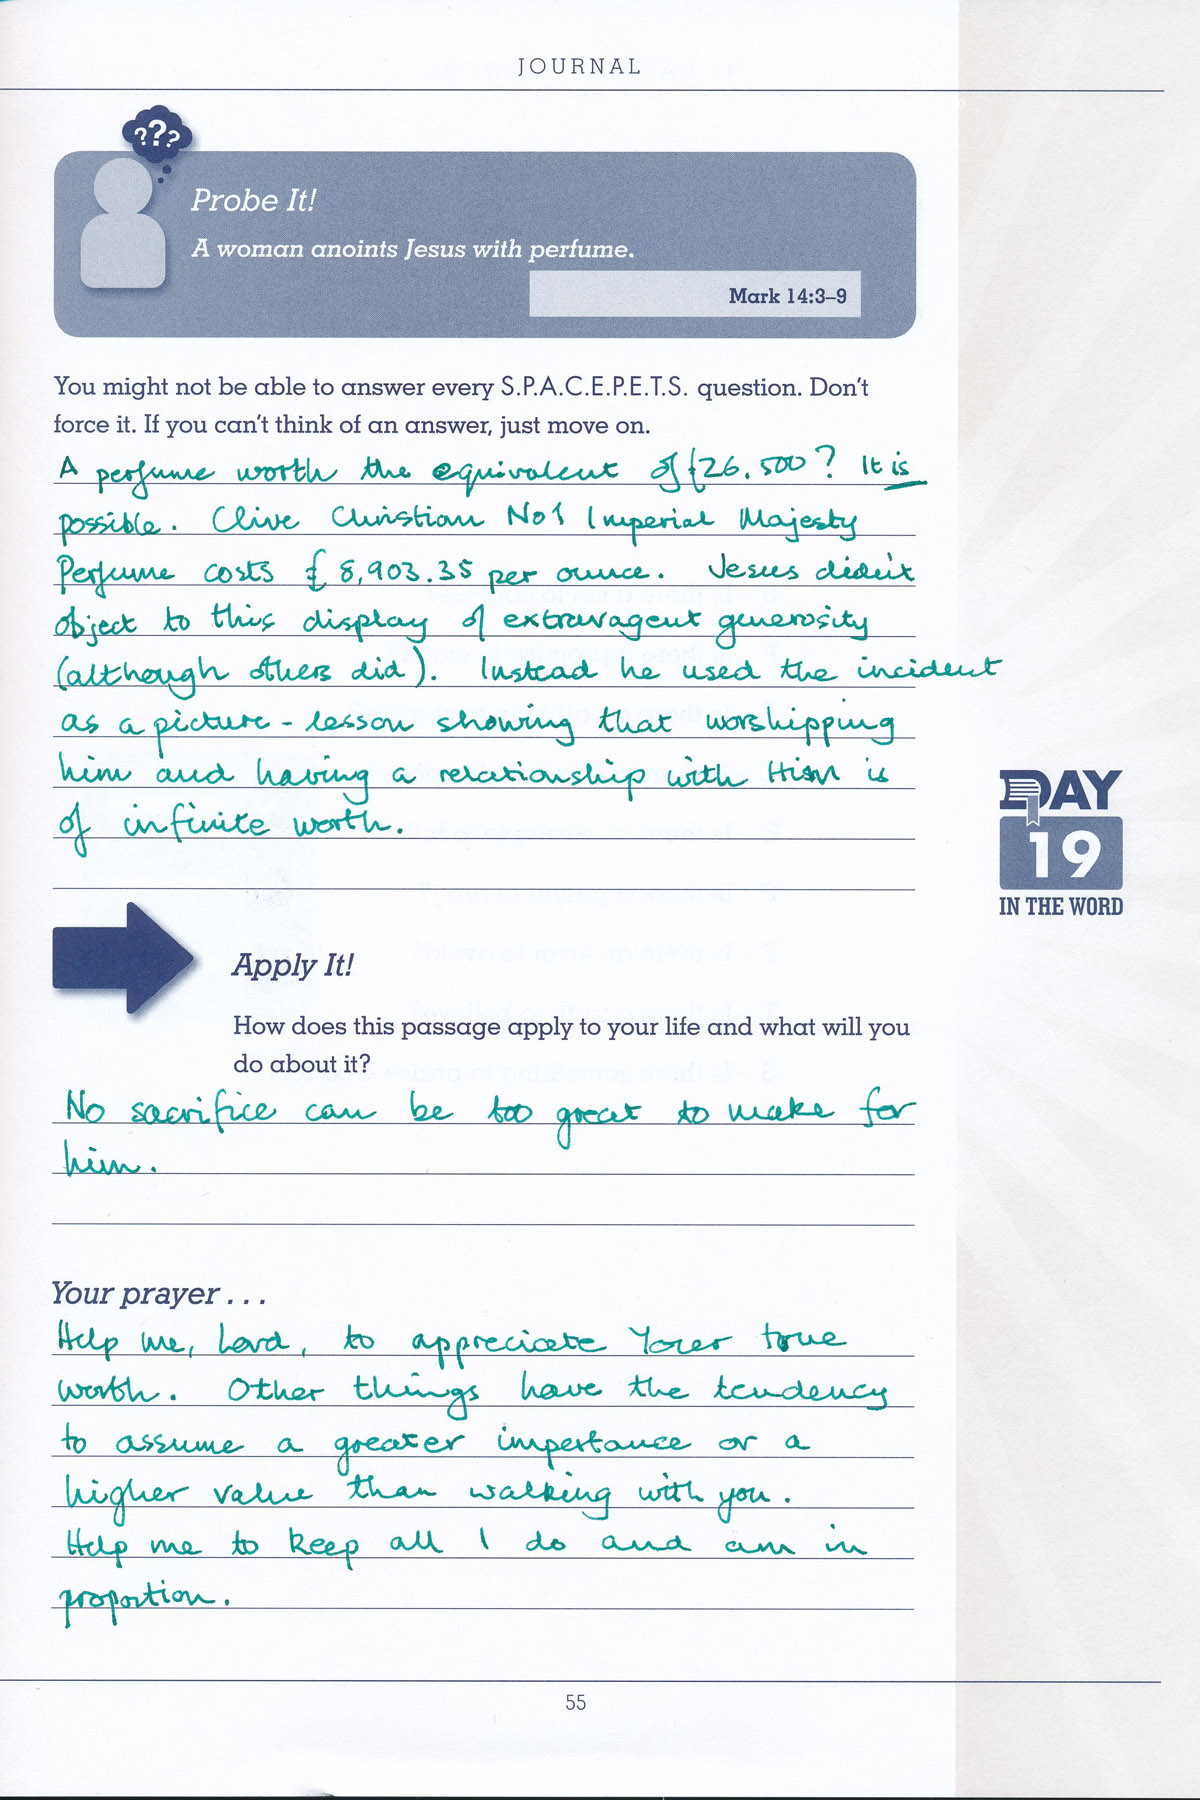 JOURNAL
???
Probe It!
A woman anoints Jesus with perfume.
Mark 14:3–9
You might not be able to answer every S.P.A.C.E.P.E.T.S. question. Don't
force it. If you can't think of an answer, just move on.
A perfume worth the equivalent of £26.500? It is
possible. Clive Christian No1 Imperial Majesty
Perfume costs £8,903.35 per ounce. Jesus didn't
object to this display of extravagent generosity
(although others did). Instead he used the incident
as a picture-lesson showing that worshipping
him and having a relationship with Him is
of infinite worth.
DAY
19
IN THE WORD
Apply It!
How does this passage apply to your life and what will you
do about it?
No sacrifice can be too great to make for
him.
Your prayer . . .
Help me, Lord, to appreciate Your true
worth. Other things have the tendency
to assume a greater importance or a
higher value than walking with you.
Help me to keep all I do and am in
proportion.
55